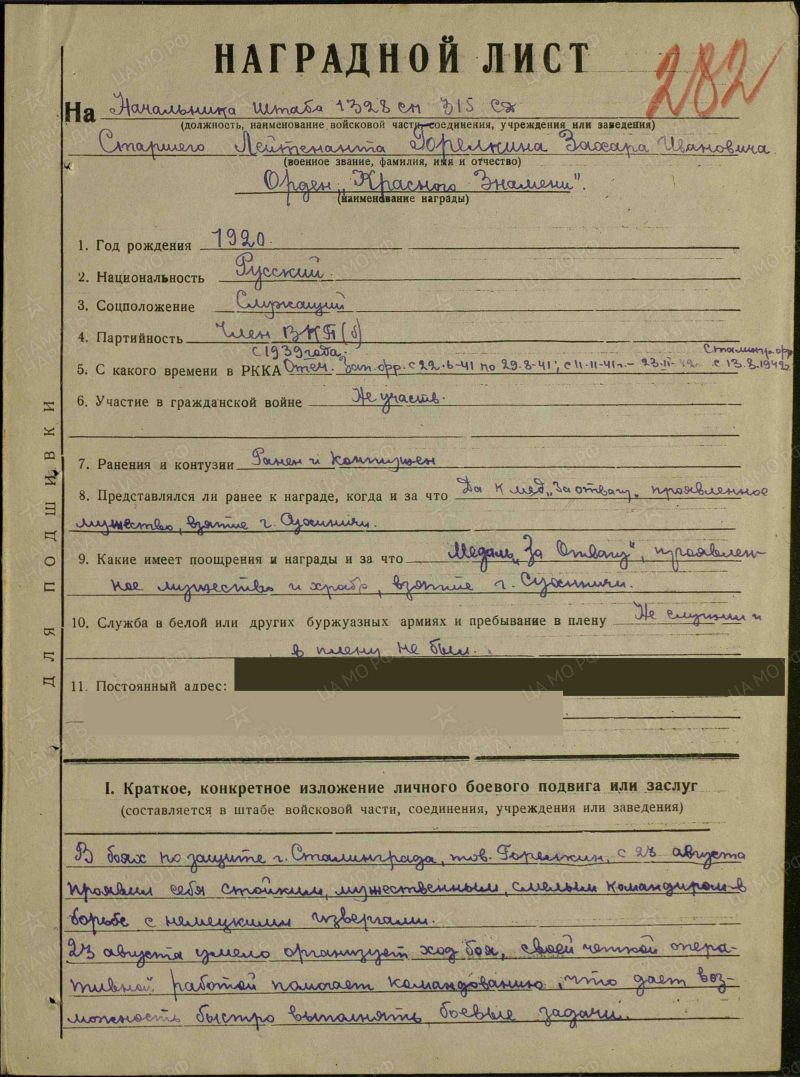 НАГРАДНОЙ ЛИСТ
282
На Начальника Штаба 1328 сп 315 сд
(должность, наименование войсковой части, соединения, учреждения или заведения)
Старшего Лейтенанта Горелкина Захара Ивановича
(военное звание, фамилия, имя и отчество)
Орден „Красного Знамени".
(наименование награды)
1. Год рождения 1920.
2. Национальность Русский.
3. Соцположение Служащий
4. Партийность Член ВКП(б)
с 1939 года. Сталингр. фр.
5. С какого времени в РККА Отеч. Зап. фр. с 22.6-41 по 29.8-41, с 11-11-41г. - 23.11-42. с 13.8.1942г.
6. Участие в гражданской войне Не участв.
7. Ранения и контузии Ранен и Контужен
8. Представлялся ли ранее к награде, когда и за что Да к мед. „За отвагу„ проявленное
мужество, взятие г. Сухиничи.
9. Какие имеет поощрения и награды и за что Медаль „За Отвагу", проявлен-
ное мужество и храбр., взятие г. Сухиничи.
10. Служба в белой или других буржуазных армиях и пребывание в плену Не служил и
в плену не был.
11. Постоянный адрес:
ДЛЯ ПОДШИВКИ
I. Краткое, конкретное изложение личного боевого подвига или заслуг
(составляется в штабе войсковой части, соединения, учреждения или заведения)
В боях по защите г. Сталинграда, тов. Горелкин, с 23 августа
проявил себя стойким, мужественным, смелым командиром в
борьбе с немецкими извергами.
23 августа умело организует ход боя, своей четкой опера-
тивной работой помогает командованию, что дает воз-
можность быстро выполнять боевые задачи.